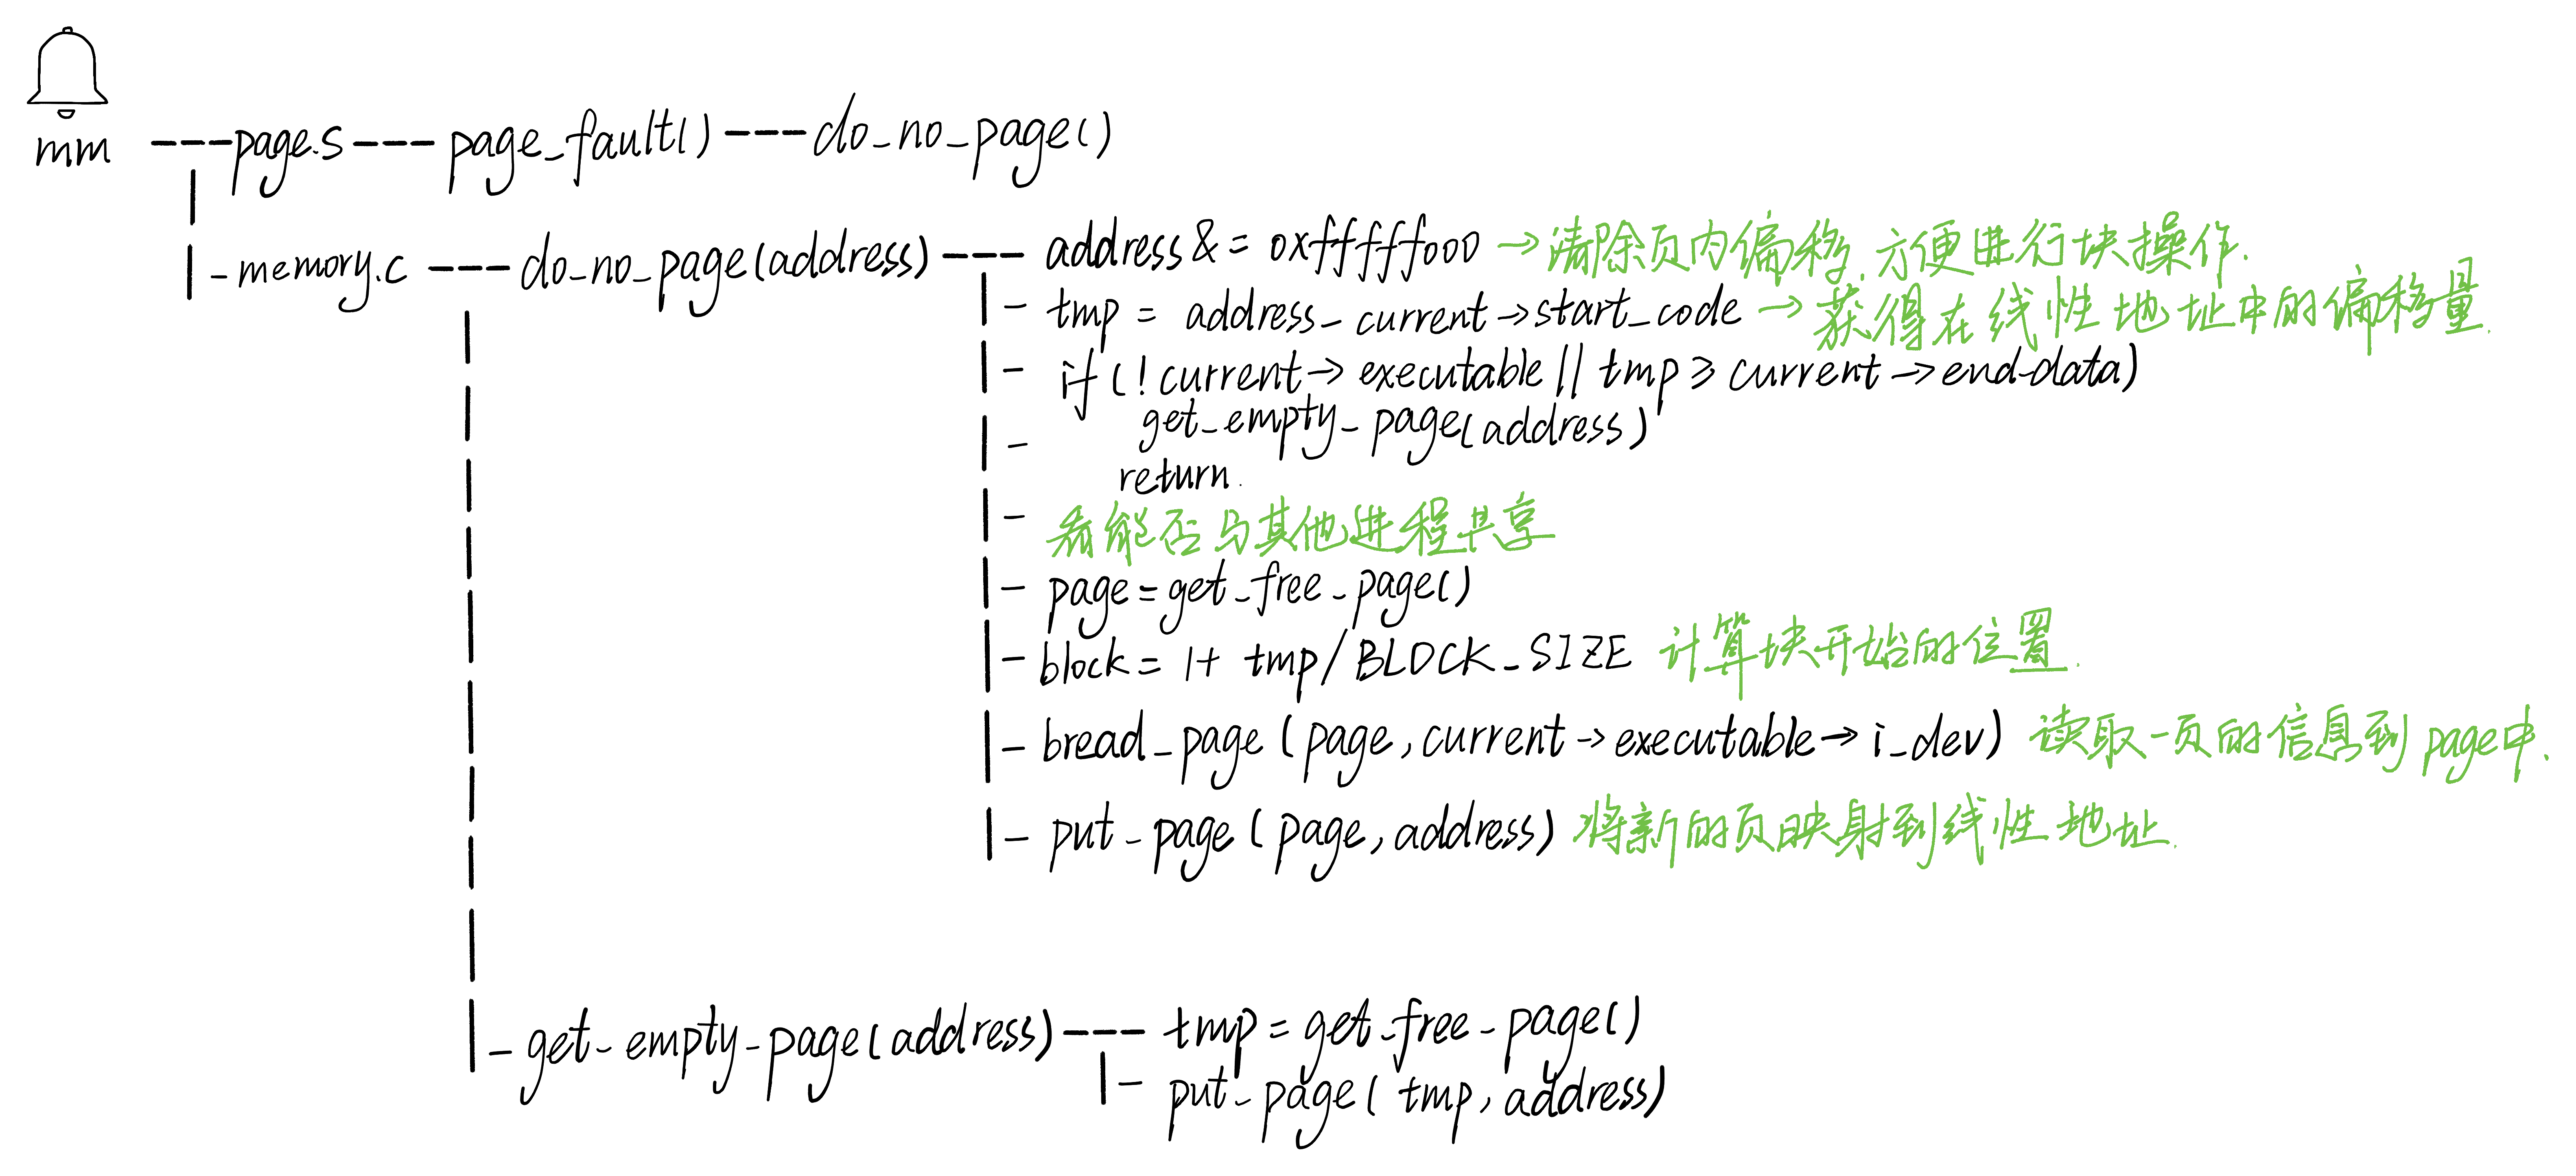 mm ---page.s --- page_fault() --- do_no_page()
|-memory.c --- do_no_page(address) --- address &= 0xfffff000 →清除页内偏移,方便进行块操作.
|- tmp = address - current→start_code →获得在线性地址中的偏移量.
|- if (!current→executable || tmp ≥ current→end-data)
|- get_empty_page(address)
return.
|- 看能否与其他进程共享
|- page=get_free_page()
|- block= 1+ tmp/BLOCK_SIZE 计算块开始的位置.
|- bread_page (page,current→executable→i_dev) 读取一页的信息到page中.
|- put_page (page,address) 将新的页映射到线性地址.
|- get-empty-page(address) --- tmp=get_free_page()
|- put_page( tmp, address)